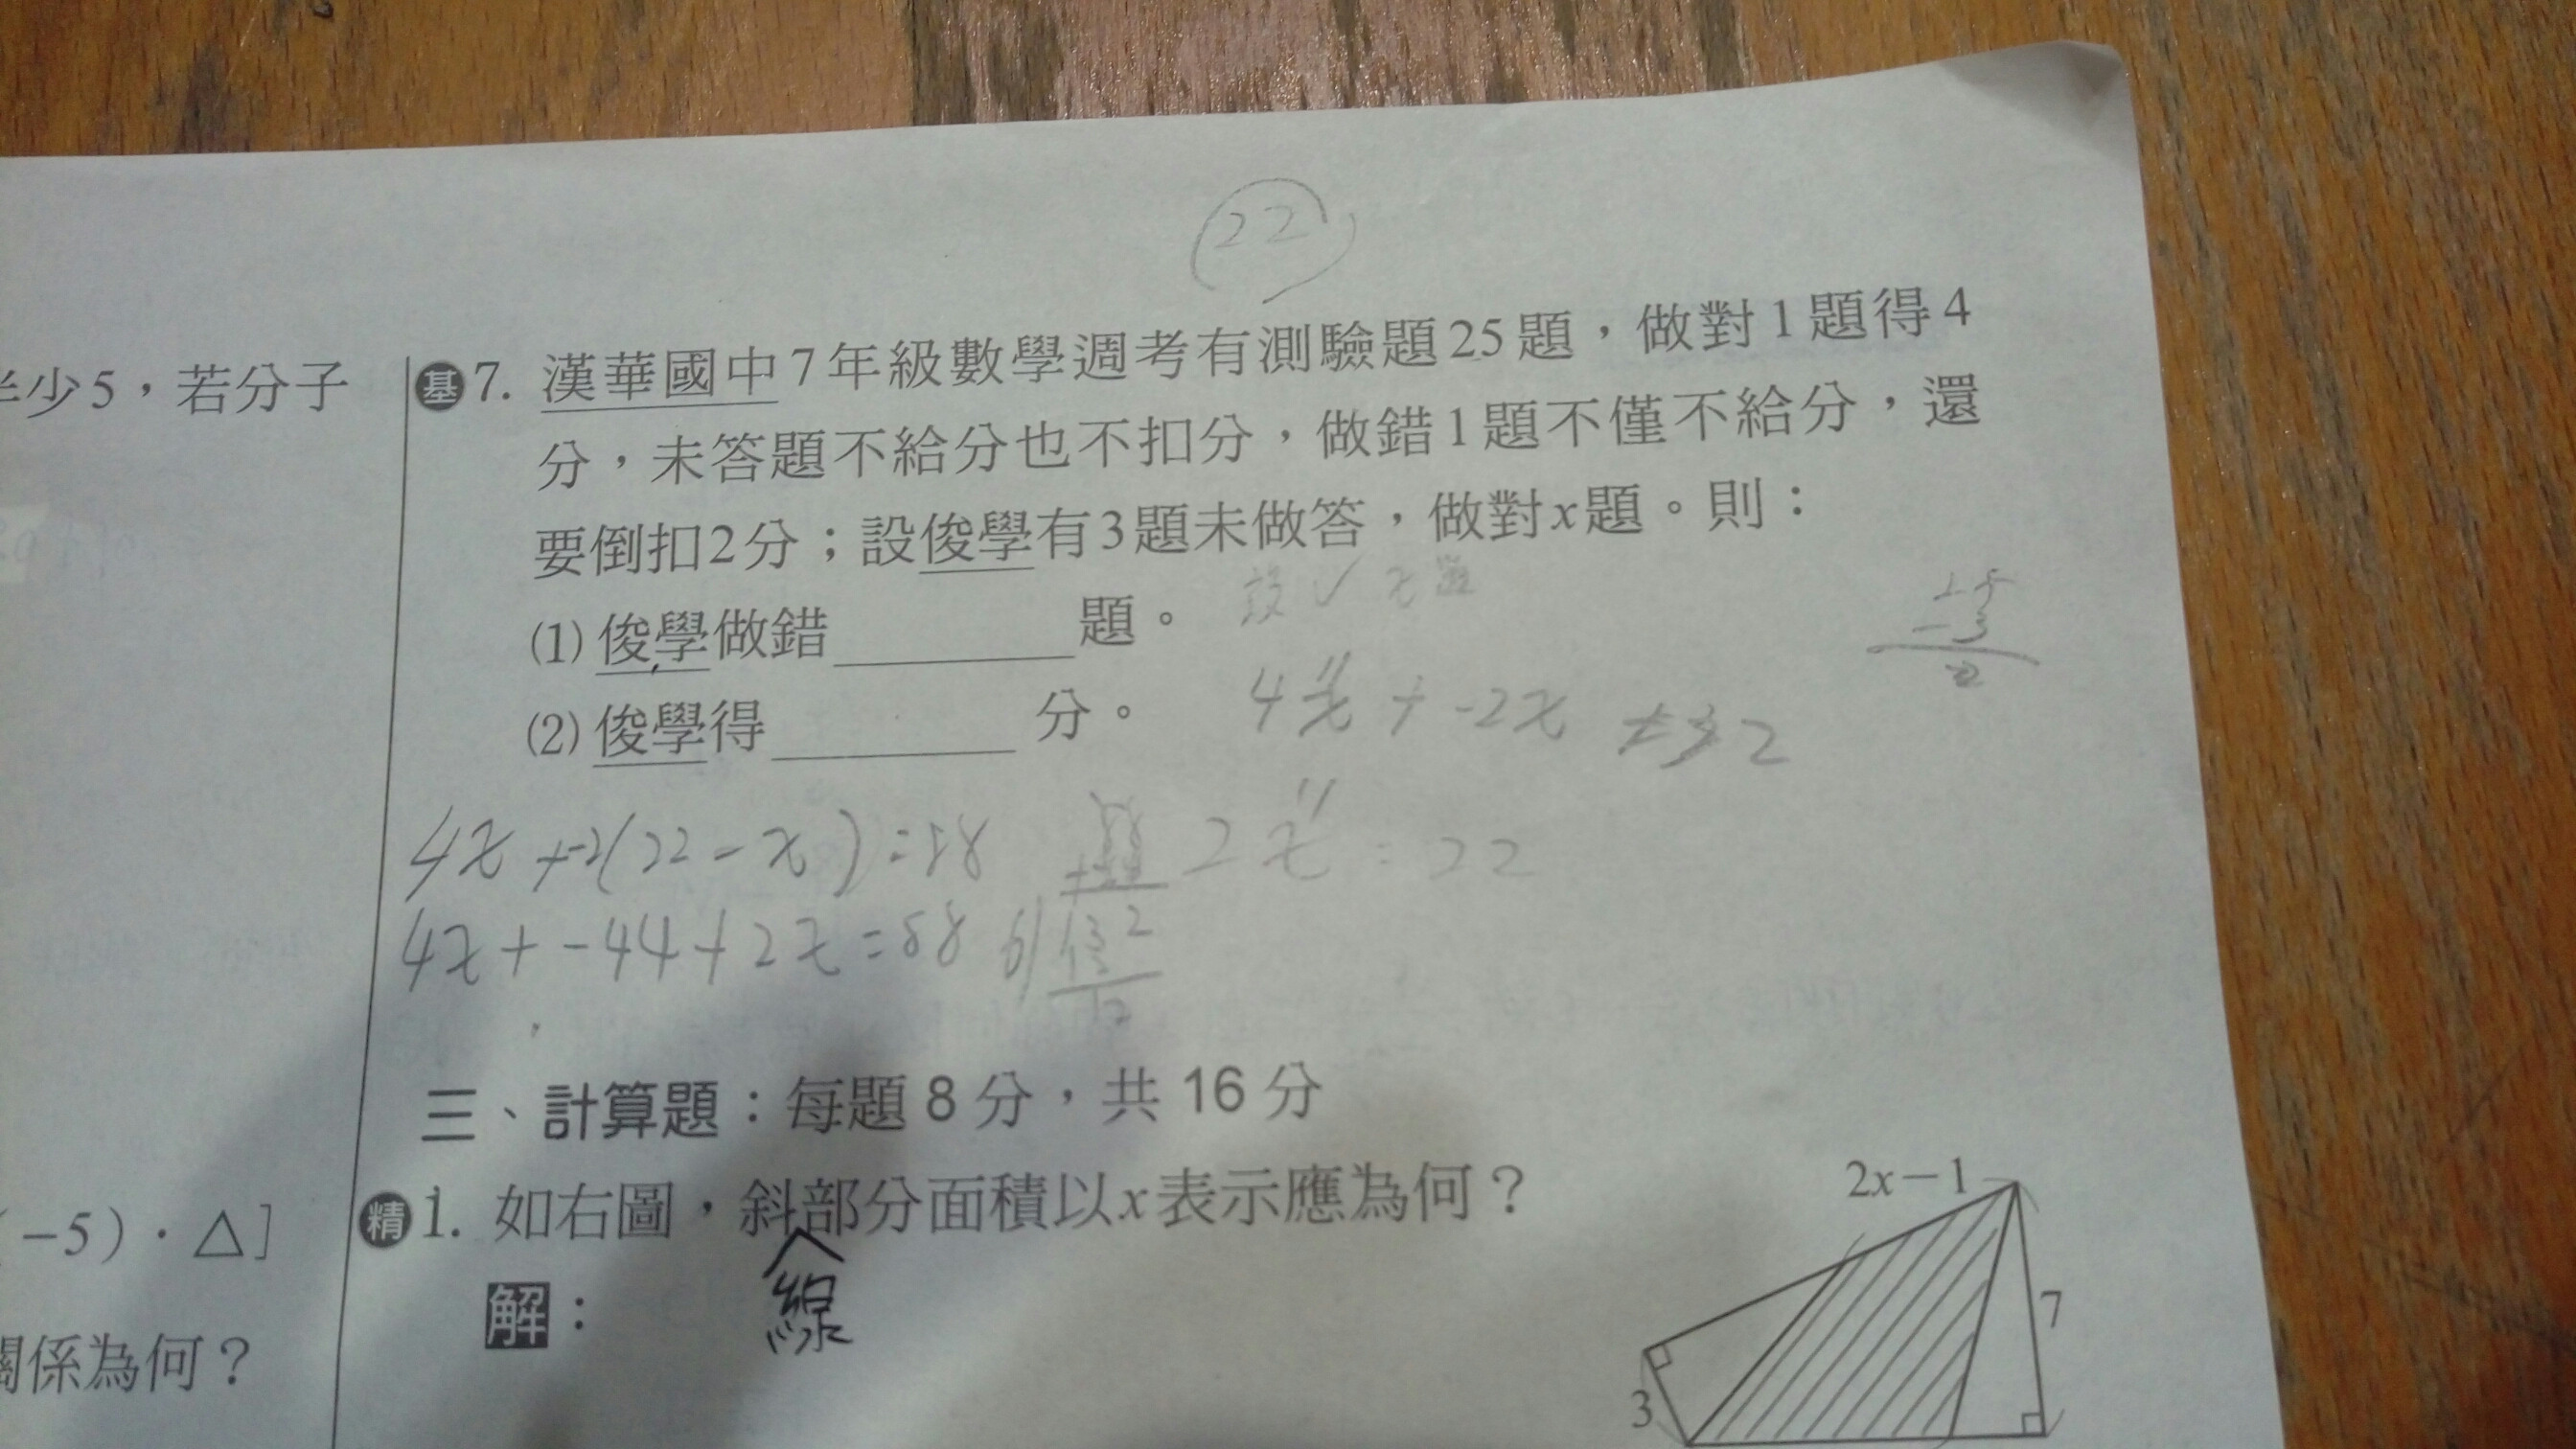 22
少5，若分子
基7. 漢華國中7年級數學週考有測驗題25題，做對1題得4
分，未答題不給分也不扣分，做錯1題不僅不給分，還
要倒扣2分；設俊學有3題未做答，做對x題。則：
(1) 俊學做錯 題。
設 ✓ x 題
(2) 俊學得 分。
25
-3
4x + -2x
4x + -2(22 - x) = 58
2x = 22
4x + -44 + 2x = 88
6) 132
三、計算題：每題 8 分，共 16 分
-5)·△]
精1. 如右圖，斜部分面積以x表示應為何？
線
解：
關係為何？
2x-1
7
3